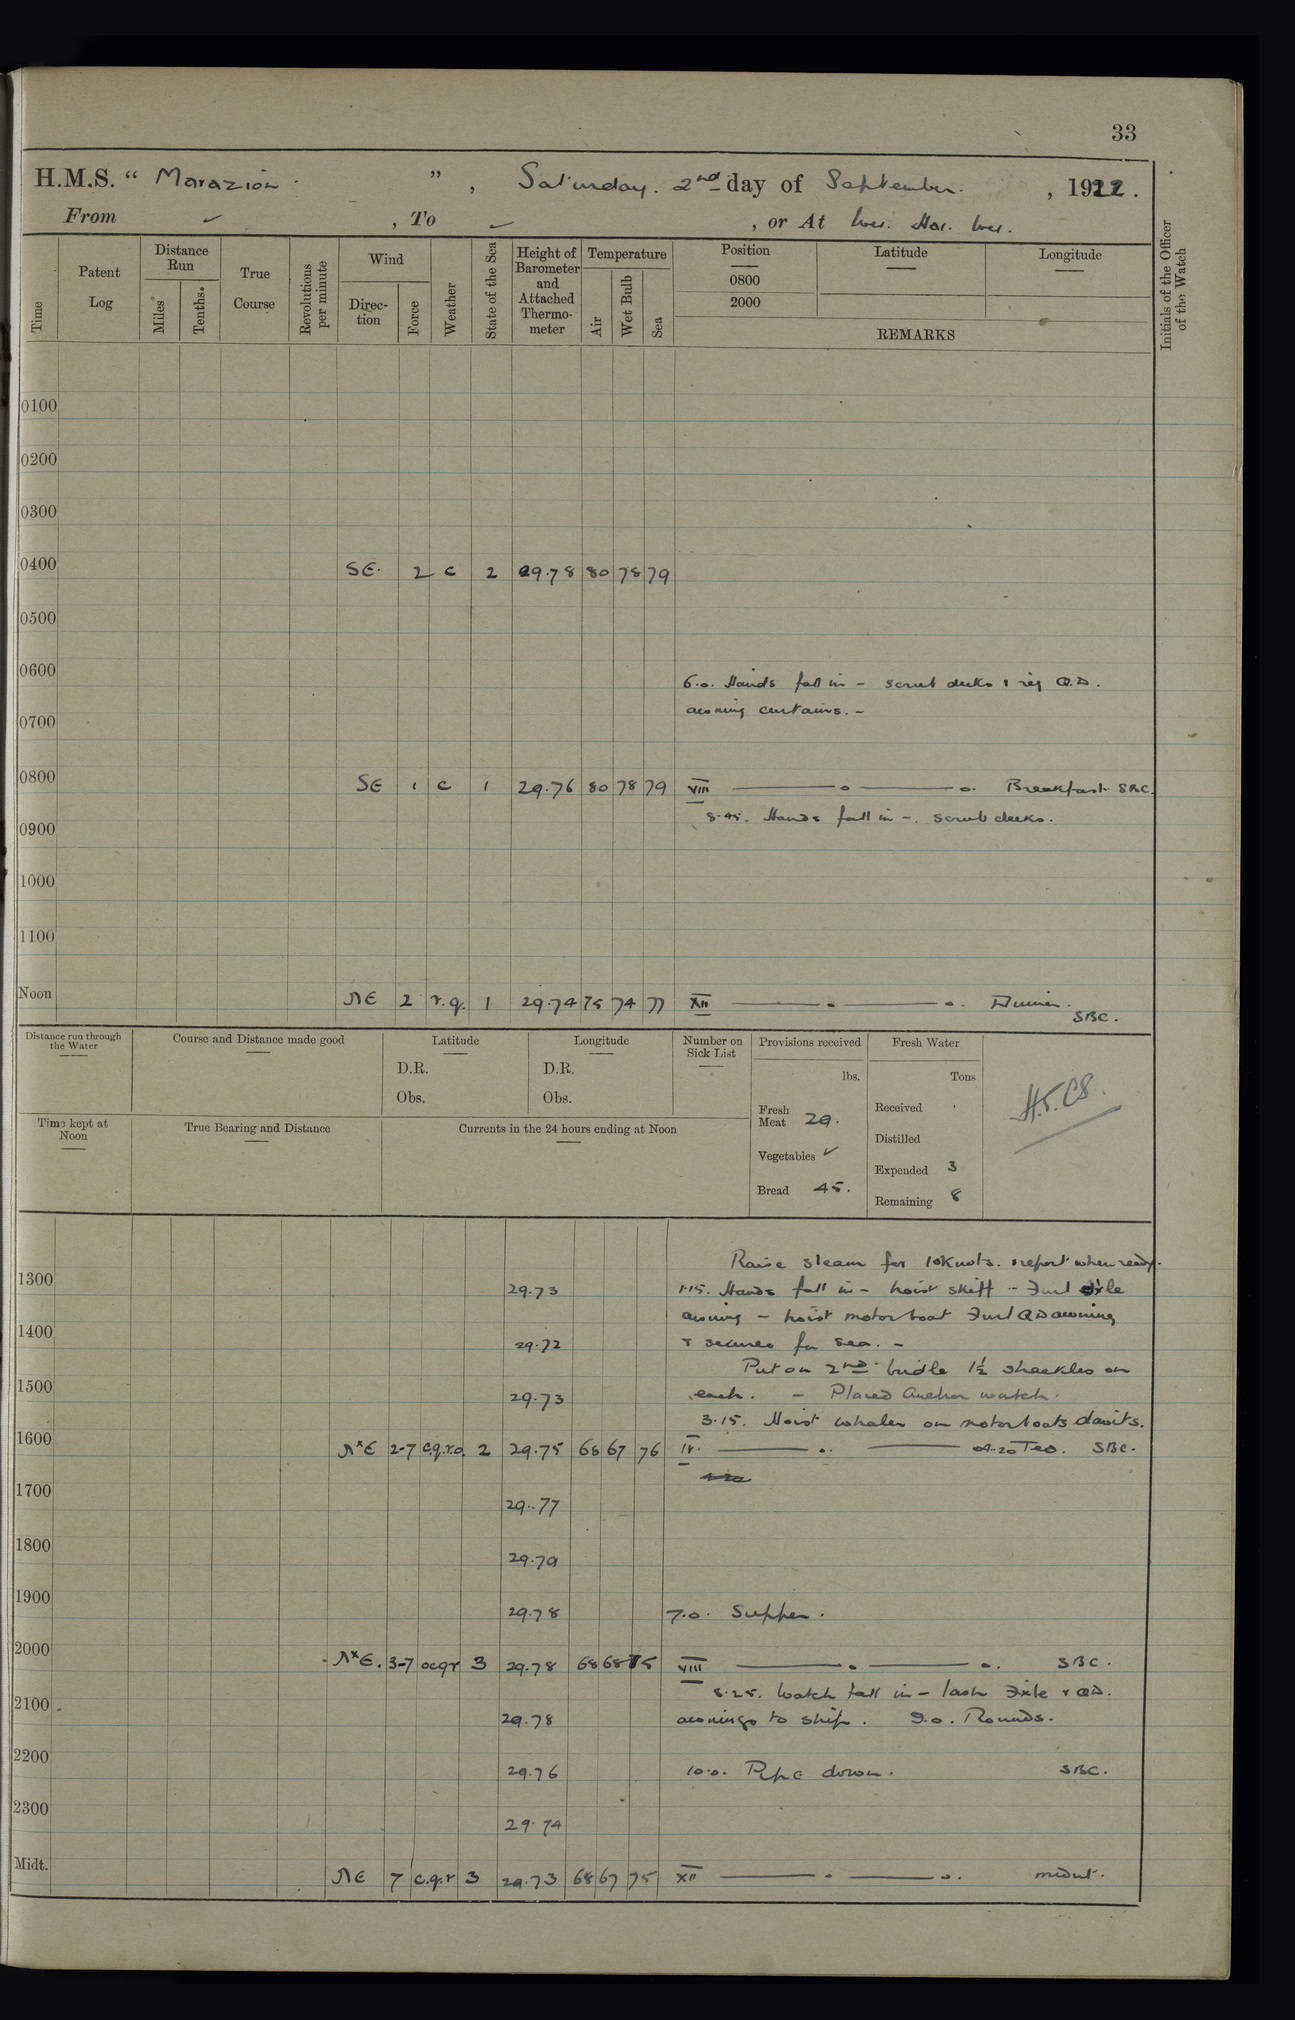 33
H.M.S. “ Marazion. ” , Saturday. 2nd day of September. , 1922.
From ✓ , To ✓ , or At Wei. Hai. Wei.
Time
Patent Log
Distance Run
Miles
Tenths.
True Course
Revolutions per minute
Wind
Direction
Force
Weather
State of the Sea
Height of Barometer and Attached Thermometer
Temperature
Air
Wet Bulb
Sea
Position
0800
2000
Latitude
Longitude
REMARKS
Initials of the Officer of the Watch
0100
0200
0300
0400 SE. 2 c 2 29.78 80 78 79
0500
0600
6.0. Hands fall in - scrub decks & rig Q.D.
0700 awning curtains. -
0800 SE 1 c 1 29.76 80 78 79 VIII o o. Breakfast. SBC.
8.45. Hands fall in -. scrub decks.
0900
1000
1100
Noon NE 2 r.q. 1 29.74 75 74 77 XII o. Dinner.
SBC.
Distance run through the Water
Course and Distance made good
Latitude
D.R.
Obs.
Longitude
D.R.
Obs.
Number on Sick List
Provisions received
lbs.
Fresh Meat 29.
Vegetables ✓
Bread 45.
Fresh Water
Tons
Received
Distilled
Expended 3
Remaining 8
Time kept at Noon
True Bearing and Distance
Currents in the 24 hours ending at Noon
Raise steam for 10 Knots. & report when ready.
1300 29.73 1.15. Hands fall in - hoist skiff - Furl Fxle
awning - hoist motor boat Furl QD awning
1400 29.72 & secures for sea. -
Put on 2nd bridle 1½ shackles on
1500 29.73 each. - Placed Anchor watch.
3.15. Hoist whaler on motorboats davits.
1600 N×E 2-7 c.q.r.o. 2 29.75 68 67 76 IV. o. 4.20 Tea. SBC.
4.20
1700 29.77
1800 29.79
1900 29.78 7.0. Supper.
2000 N×E. 3-7 ocqr 3 29.78 68 68 75 VIII o o. SBC.
8.25. Watch fall in - lash Fxle & QD.
2100 29.78 awnings to ship. 9.0. Rounds.
2200 29.76 10.0. Pipe down. SBC.
2300 29.74
Midt. NE 7 c.q.r 3 29.73 68 67 75 XII o o. midnt.